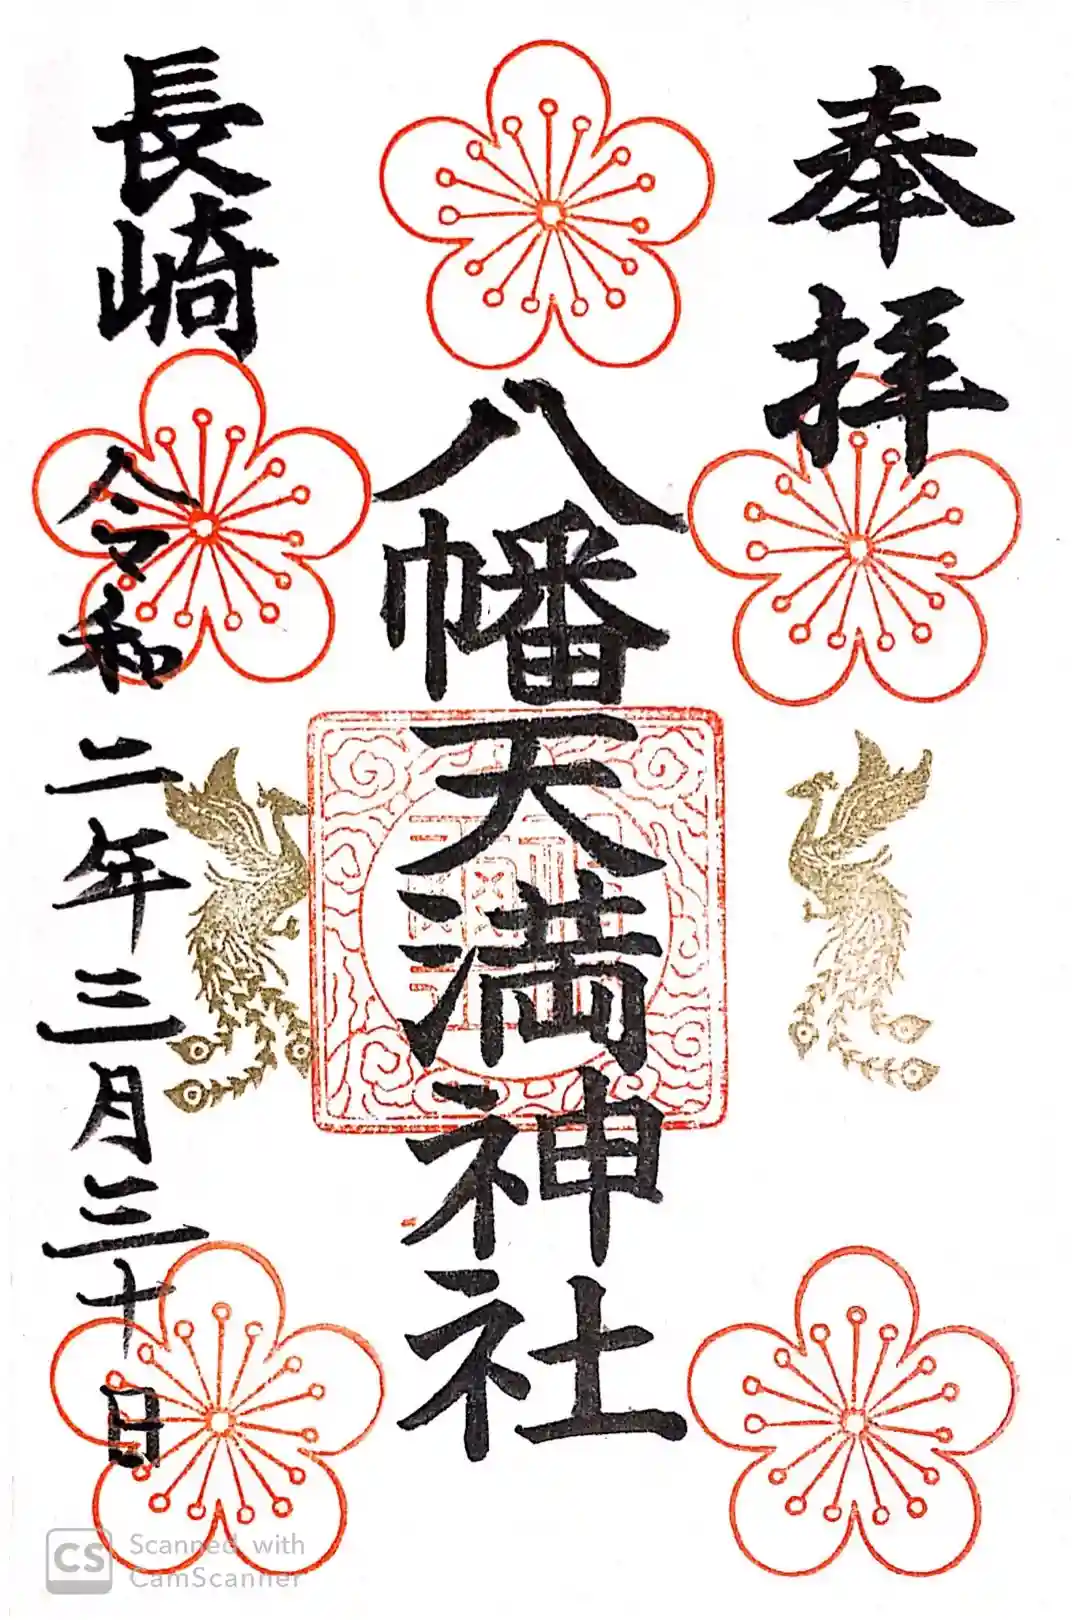 奉拝
八幡天満神社
長崎
令和二年三月三十日
CS Scanned with
CamScanner